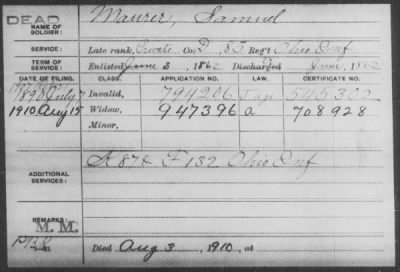 DEAD
NAME OF SOLDIER: Maurer, Samuel
SERVICE: Late rank, Private Co. D, 85 Reg't Ohio Inf
TERM OF SERVICE: Enlisted June 3, 1862 Discharged June, 1862
DATE OF FILING. CLASS. APPLICATION NO. LAW. CERTIFICATE NO.
1890 July 7 Invalid, 794206 545302
1910 Aug 15 Widow, 947396 a 708928
Minor,
ADDITIONAL SERVICES: K 87 & F 132 Ohio Inf
REMARKS:
M. M.
Died Aug 3, 1910, at